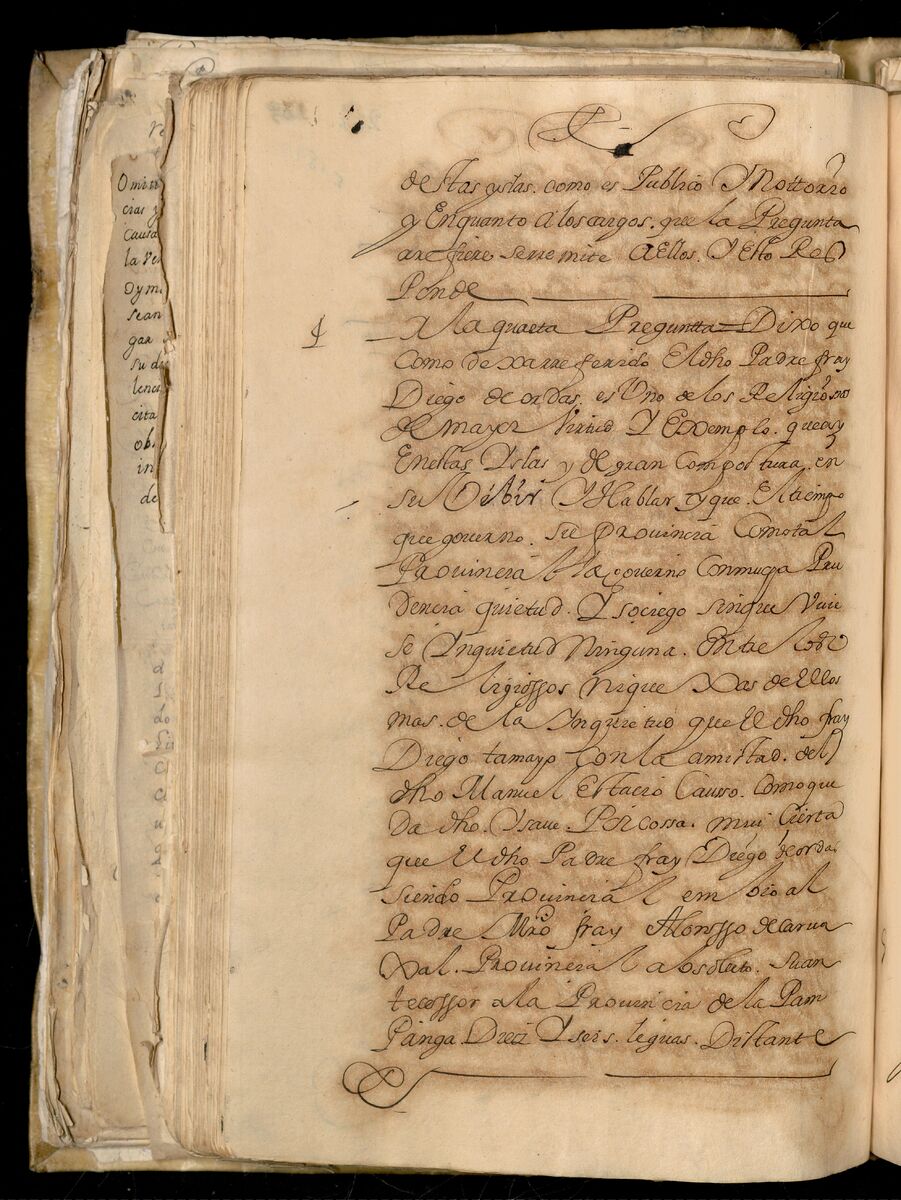 Omiti
cias y
Causa
la Ve
Dyma
sean
gar
su d
lenci
cita
ob
in
de
destas yslas. como es Publico Y Nottorio
y Enquanto a los cargos. que la Pregunta
arrefiere serremite a Ellos. Y Esto Res
Ponde
4 A la quarta Preguntta = Dixo que
como dexarrefferido El dho Padre fray
Diego de ordas. es Uno de los Religiosos
de mayor Virtud Y Exemplo. que ay
En estas Yslas y de gran Compostura. en
su Y Hablar y que. El tiempo
que governo. su provincia Como tal
Provincial la governo Con mucha Pru
dencia quietud. Y sociego sin que Vuie
se Ynquietud Ninguna. Entre los
Religiossos ni que Xas de Ellos
mas. de la Inquietud que El dho fray
Diego tamayo Con la amistad. del
dho Manuel Estacio Causso. Como que
da dho. Y save. Por cossa. mui Cierta
que El dho Padre fray Diego de orda
siendo Provincial embio al
Padre Mro fray Alonsso de Carva
Xal. Provincial absoluto. su an
tecessor a la Provincia de la Pam
Panga. Diez Y seis. leguas. Distante